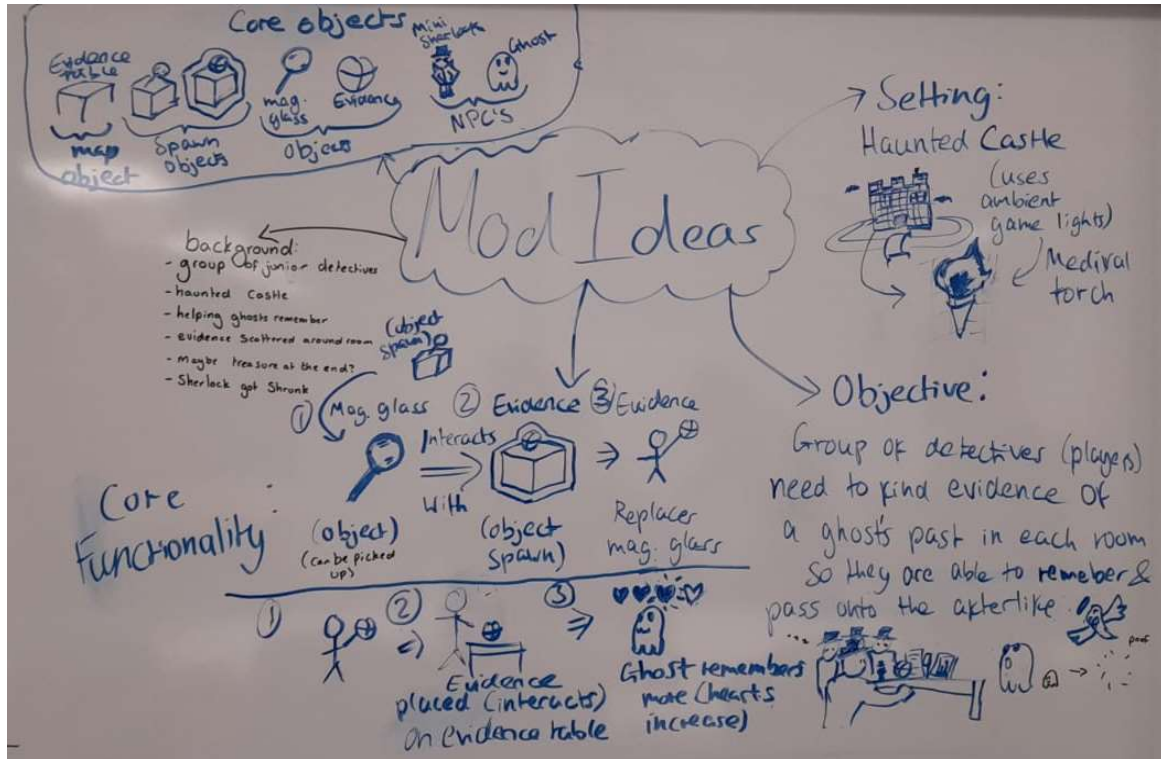 Core objects
Evidence table
map object
Spawn objects
mag. glass
Evidence
objects
Mini Sherlock
Ghost
NPC'S
Mod Ideas
Setting:
Haunted Castle
(uses
ambient
game lights)
Medival
torch
background:
- group of junior detectives
- haunted Castle
- helping ghosts remember
- evidence scattered around room
- Maybe treasure at the end?
- Sherlock got Shrunk
(object
spawn)
Core
Functionality:
① Mag. glass
(object)
(can be picked
up)
Interacts
With
② Evidence
(object
spawn)
③ Evidence
Replaces
mag. glass
①
②
Evidence
placed (interacts)
on evidence table
③
Ghost remembers
more (hearts
increase)
Objective:
Group of detectives (players)
need to find evidence of
a ghost's past in each room
so they are able to remeber &
pass onto the afterlife.
poof